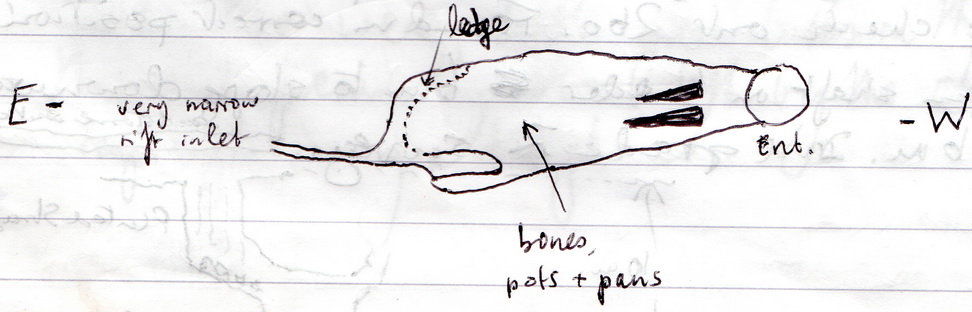 ledge
E -
very narrow
rift inlet
- W
Ent.
bones,
pots + pans